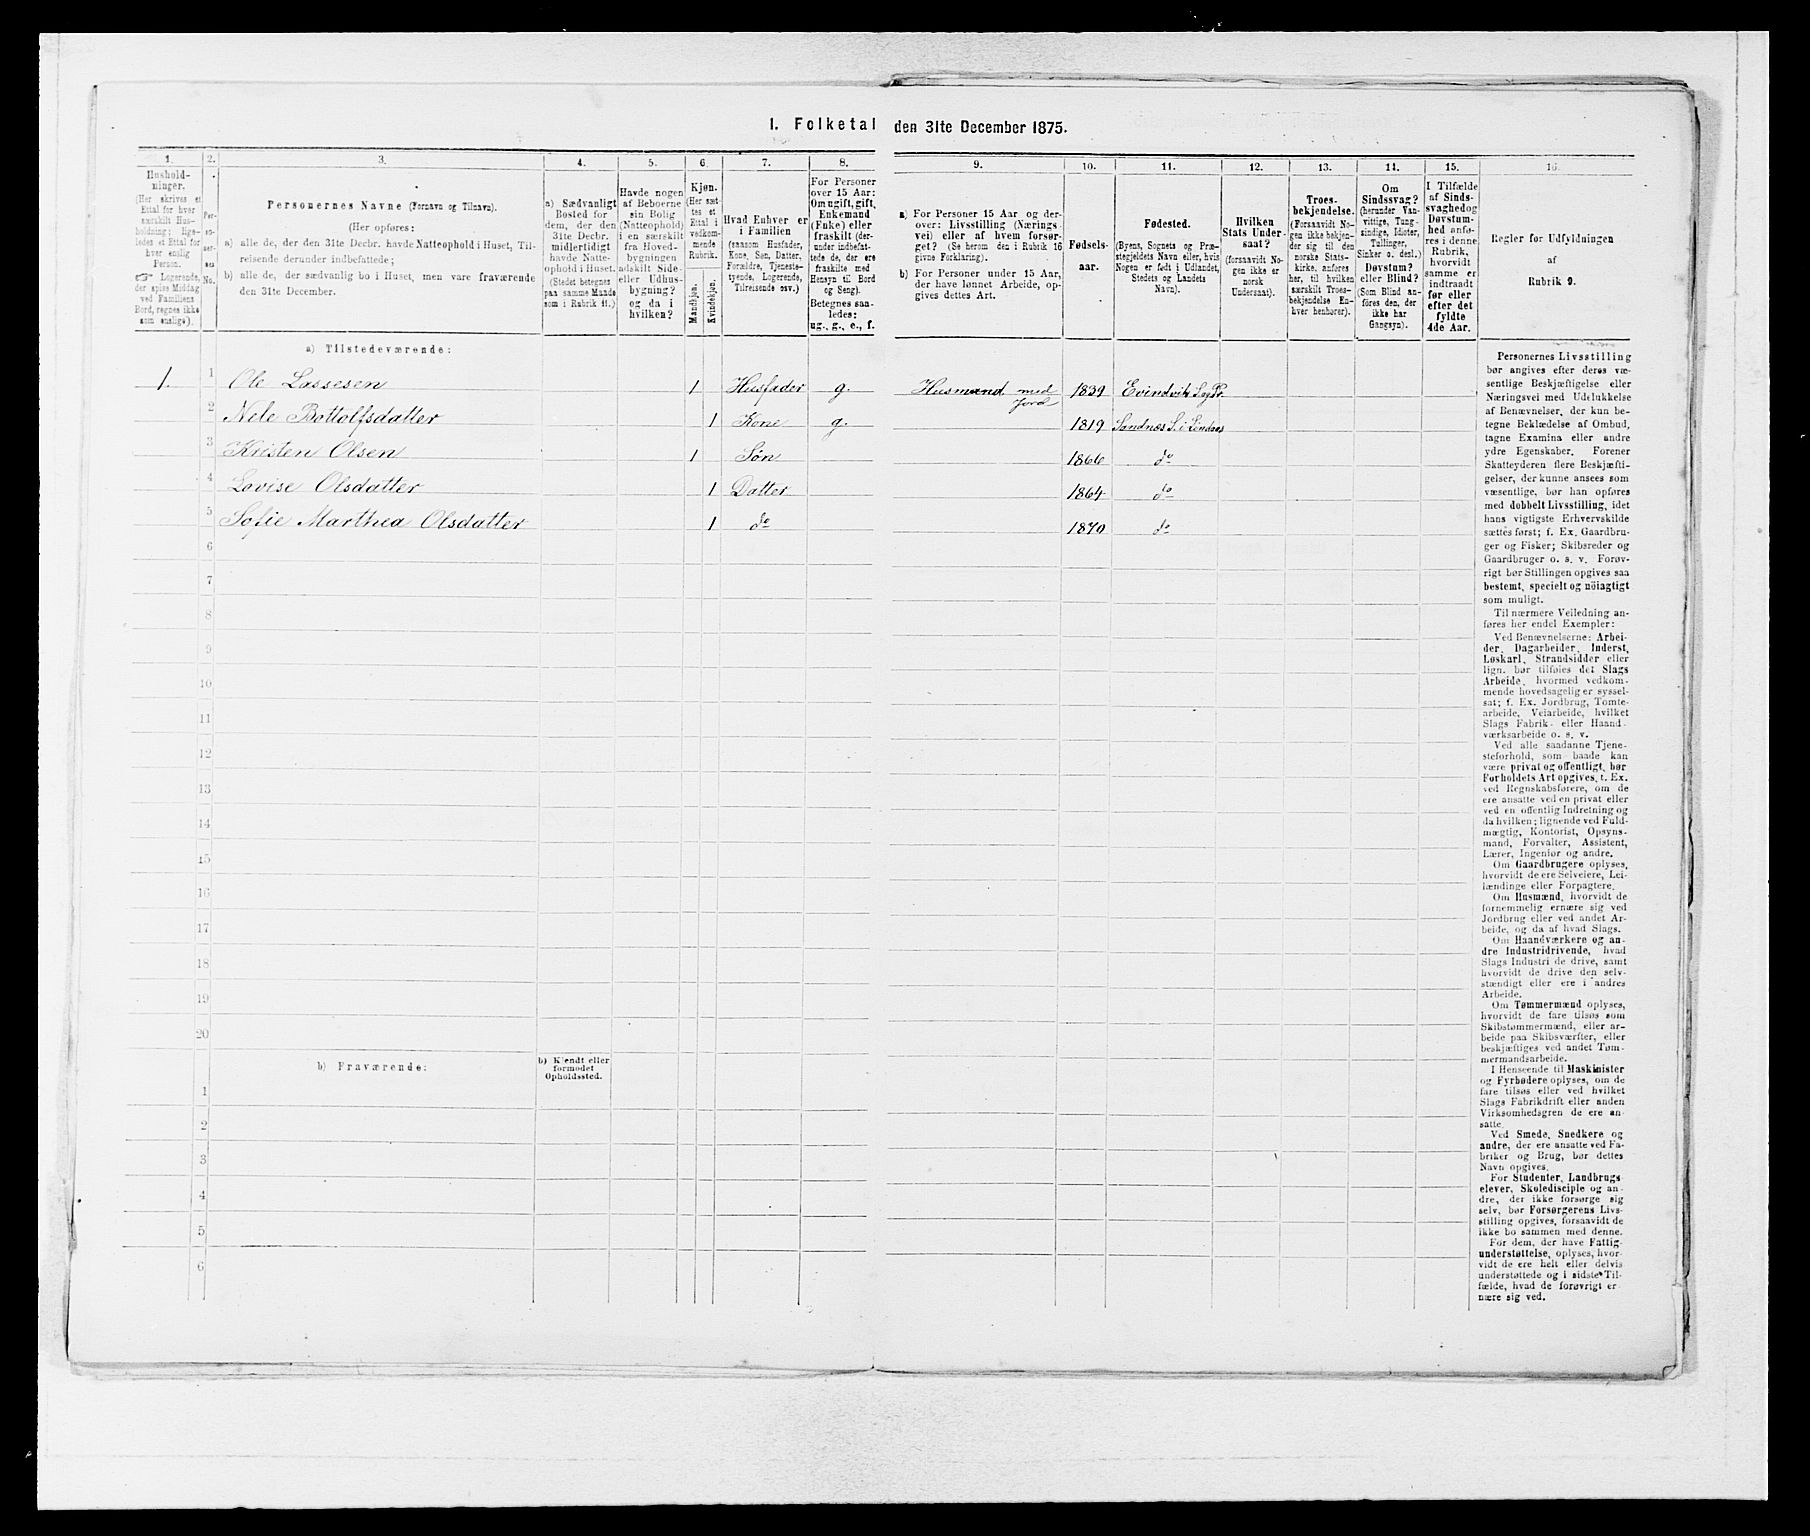 I. Folketal den 31te December 1875.
1. 2. 3. 4. 5. 6. 7. 8. 9. 10. 11. 12. 13. 14. 15. 16.
Hushold-
ninger.
(Her skrives et
Ettal for hver
særskilt Hus-
holdning; lige-
ledes et Ettal for
hver enslig
Person.
☞ Logerende,
der spise Middag
ved Familiens
Bord, regnes ikke
som enslige).
Per-
so-
ner-
nes
No.
Personernes Navne (Fornavn og Tilnavn).
(Her opføres:
a) alle de, der den 31te Decbr. havde Natteophold i Huset, Til-
reisende derunder indbefattede;
b) alle de, der sædvanlig bo i Huset, men vare fraværende
den 31te December.
a) Sædvanligt
Bosted for
dem, der den
31te Decbr.
midlertidigt
havde Natte-
ophold i Huset.
(Stedet betegnes
paa samme Maade
som i Rubrik 11.)
Havde nogen
af Beboerne
sin Bolig
(Natteophold)
i en særskilt
fra Hoved-
bygningen
adskilt Side-
eller Udhus-
bygning?
og da i
hvilken?
Kjøn.
(Her sæt-
tes et
Ettal i
vedkom-
mende
Rubrik.
Mandkjøn.
Kvindekjøn.
Hvad Enhver er
i Familien
(saasom Husfader,
Kone, Søn, Datter,
Forældre, Tjeneste-
tyende, Logerende,
Tilreisende osv.)
For Personer
over 15 Aar:
Om ugift, gift,
Enkemand
(Enke) eller
fraskilt (der-
under indbefat-
tede de, der ere
fraskilte med
Hensyn til Bord
og Seng).
Betegnes saa-
ledes:
ug., g., e., f.
a) For Personer 15 Aar og der-
over: Livsstilling (Nærings-
vei) eller af hvem forsør-
get? (Se herom den i Rubrik 16
givne Forklaring).
b) For Personer under 15 Aar,
der have lønnet Arbeide, op-
gives dettes Art.
Fødsels-
aar.
Fødested.
(Byens, Sognets og Præ-
stegjeldets Navn eller, hvis
Nogen er født i Udlandet,
Stedets og Landets
Navn).
Hvilken
Stats Under-
saat?
(forsaavidt No-
gen ikke er
norsk
Undersaat).
Troes-
bekjendelse.
(Forsaavidt No-
gen ikke bekjen-
der sig til den
norske Stats-
kirke, anføres
her, til hvilken
særskilt Troes-
bekjendelse En-
hver henhører).
Om
Sindssvag?
(herunder Van-
vittige, Tung-
sindige, Idioter,
Tullinger,
Sinker o. desl.)
Døvstum?
eller Blind?
(Som Blind an-
føres den, der
ikke har
Gangsyn).
I Tilfælde
af Sinds-
svaghed og
Døvstum-
hed anfø-
res i denne
Rubrik,
hvorvidt
samme er
indtraadt
før eller
efter det
fyldte
4de Aar.
Regler for Udfyldningen
af
Rubrik 9.
a) Tilstedeværende:
1. 1 Ole Lassesen 1 Husfader g. Husmand med Jord 1839 Evindvik S og Pr.
2 Nele Bottolfsdatter 1 Kone g. 1819 Sandnæs S. i Lindaas
3 Kristen Olsen 1 Søn 1866 do
4 Lovise Olsdatter 1 Datter 1864 do
5 Sofie Marthea Olsdatter 1 do 1870 do
6
7
8
9
10
11
12
13
14
15
16
17
18
19
20
b) Fraværende:
b) Kjendt eller
formodet
Opholdssted.
1
2
3
4
5
6
Personernes Livsstilling
bør angives efter deres væ-
sentlige Beskjæftigelse eller
Næringsvei med Udelukkelse
af Benævnelser, der kun be-
tegne Beklædelse af Ombud,
tagne Examina eller andre
ydre Egenskaber. Forener
Skatteyderen flere Beskjæfti-
gelser, der kunne ansees som
væsentlige, bør han opføres
med dobbelt Livsstilling, idet
hans vigtigste Erhvervskilde
sættes først; f. Ex. Gaardbru-
ger og Fisker; Skibsreder og
Gaardbruger o. s. v. Forøv-
rigt bør Stillingen opgives saa
bestemt, specielt og nöiagtigt
som muligt.
Til nærmere Veiledning an-
føres her endel Exempler:
Ved Benævnelserne: Arbei-
der, Dagarbeider, Inderst,
Løskarl, Strandsidder eller
lign. bør tilføies det Slags
Arbeide, hvormed vedkom-
mende hovedsagelig er syssel-
sat; f. Ex. Jordbrug, Tomte-
arbeide, Veiarbeide, hvilket
Slags Fabrik- eller Haand-
værksarbeide o. s. v.
Ved alle saadanne Tjene-
steforhold, som baade kan
være privat og offentligt, bør
Forholdets Art opgives, t. Ex.
ved Regnskabsførere, om de
ere ansatte ved en privat eller
ved en offentlig Indretning og
da hvilken; lignende ved Fuld-
mægtig, Kontorist, Opsyns-
mand, Forvalter, Assistent,
Lærer, Ingeniør og andre.
Om Gaardbrugere oplyses,
hvorvidt de ere Selveiere, Lei-
lændinge eller Forpagtere.
Om Husmænd, hvorvidt de
fornemmelig ernære sig ved
Jordbrug eller ved andet Ar-
beide, og da af hvad Slags.
Om Haandværkere og an-
dre Industridrivende, hvad
Slags Industri de drive, samt
hvorvidt de drive den selv-
stændigt eller ere i andres
Arbeide.
Om Tømmermænd oplyses,
hvorvidt de fare tilsøs som
Skibstømmermænd, eller ar-
beide paa Skibsværfter, eller
beskjæftiges ved andet Tøm-
mermandsarbeide.
I Henseende til Maskinister
og Fyrbødere oplyses, om de
fare tilsøs eller ved hvilket
Slags Fabrikdrift eller anden
Virksomhedsgren de ere an-
satte.
Ved Smede, Snedkere og
andre, der ere ansatte ved Fa-
briker og Brug, bør dettes
Navn opgives.
For Studenter, Landbrugs-
elever, Skoledisciple og an-
dre, der ikke forsørge sig
selv, bør Forsørgerens Livs-
stilling opgives, forsaavidt de
ikke bo sammen med denne.
For dem, der have Fattig-
understøttelse, oplyses, hvor-
vidt de ere helt eller delvis
understøttede og i sidste Til-
fælde, hvad de forøvrigt er-
nære sig ved.